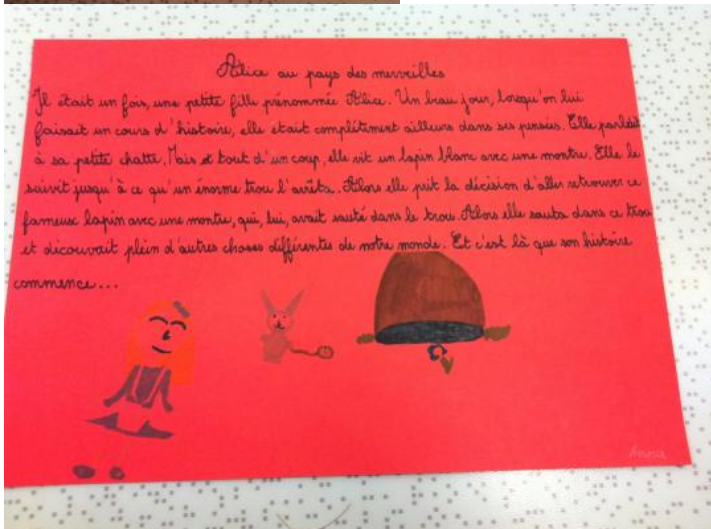 Alice au pays des merveilles
Il était un fois, une petite fille prénommée Alice. Un beau jour, lorsqu'on lui
faisait un cours d'histoire, elle était complétement ailleurs dans ses pensées. Elle parlait
à sa petite chatte. Mais et tout d'un coup, elle vit un lapin blanc avec une montre. Elle le
suivit jusqu'à ce qu'un énorme trou l'arrêta. Alors elle prit la décision d'aller retrouver ce
fameux lapin avec une montre, qui, lui, avait sauté dans le trou. Alors elle sauta dans ce trou
et dicouvrait plein d'autres choses différentes de notre monde. Et c'est là que son histoire
commence...